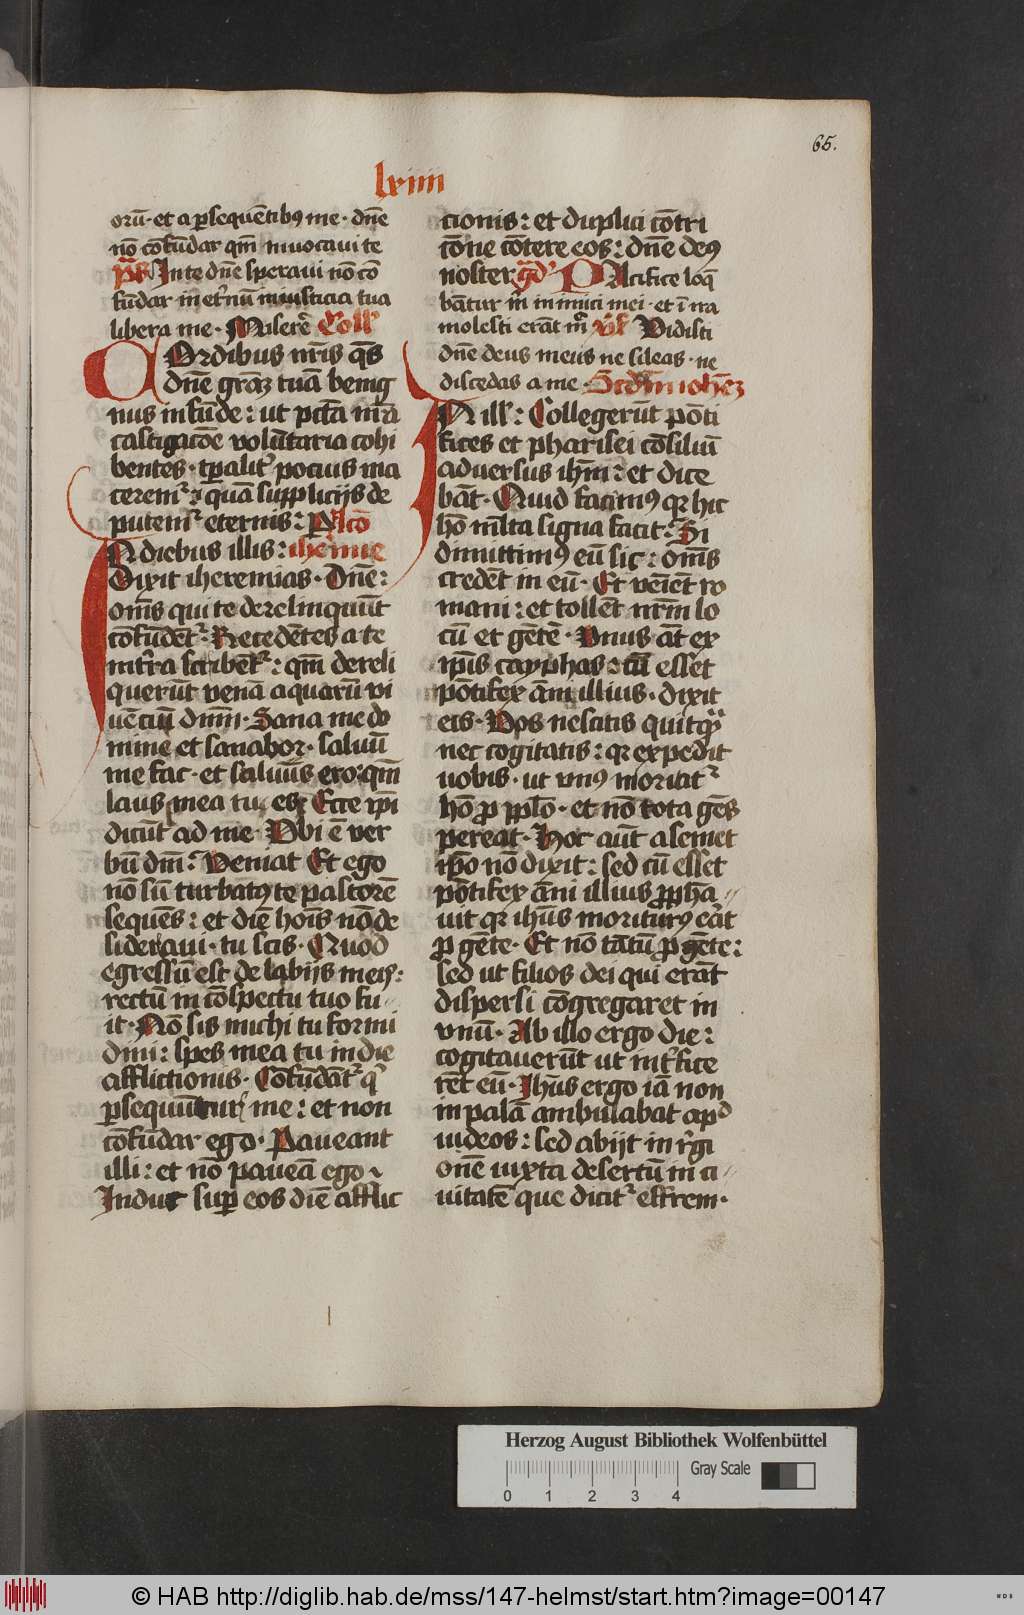 65.
lxiiii
orū · et a ꝑsequētibꝰ me · dn̄e
nō cōfūdar qm̄ inuocaui te
p̄s In te dn̄e speraui nō cō
fūdar in et̕nū in iusticia tua
libera me · Miserē Coll̕
COrdibus nr̄is q̄s
dn̄e gr̄aꝫ tuā benig
nus infūde : ut pctā nr̄a
castigacōe volūtaria cohi
bentes · tp̄alit̕ pocius ma
cerem̕ : quā supplicijs de
putem̕ eternis : Lc̄o
IN diebus illis : iheremie
Dixit iheremias · Dn̄e :
om̄s qui te derelinquūt
cōfūdēt̕ : Recedētes a te
in t̕ra scribēt̕ : qm̄ dereli
querūt venā aquarū vi
uēciū dnm̄ · Sana me do
mine et sanabor · saluū
me fac · et saluus ero : qm̄
laus mea tu es · Ecce ip̄i
dicūt ad me · Vbi ē ver
bū dn̄i : Veniat Et ego
nō sū turbatꝰ te pastorē
sequēs : et diē hoīs nō de
sideraui · tu scis · Quod
egressū est de labijs meis :
rectū in cōspectu tuo fu
it · Nō sis michi tu formi
dini : spes mea tu in die
afflictionis · Cōfūdāt̕ q̕
ꝑsequūtur me : et non
cōfūdar ego · Paueant
illi : et nō paueā ego ·
Induc suꝑ eos diē afflic
cionis : et duplici cōtri
cōne cōtere eos : dn̄e deꝰ
noster Gd̕ PAcifice loq̄
bātur m̄ inimici mei · et ī ira
molesti erāt m̄ Vs̄ Vidisti
dn̄e deus meus ne sileas · ne
discedas a me · Scdm̄ Iohēꝫ
IN ill̕ : Collegerūt pōti
fices et pharisei cōsiliū
aduersus ihm̄ : et dice
bāt · Quid facimꝰ qꝛ hic
hō ml̄ta signa facit : Si
dimittimꝰ eū sic : om̄s
credēt in eū · Et veīet ro
mani : et tollēt nr̄m lo
cū et gētē · Vnus āt ex
ip̄is cayphas : cū esset
pōtifex āni illius · dixit
eis · Vos nescitis quitq̄
nec cogitatis : qꝛ expedit
uobis · ut vnꝰ moriat̕
hō ꝓ pplo · et nō tota gēs
pereat · Hoc aūt a semet
ip̄o nō dixit : sed cū esset
pōtifex āni illius ꝓpha
uit qꝛ ihūs moriturꝰ erāt
ꝓ gēte · Et nō tātū ꝓ gēte :
sed ut filios dei qui erāt
dispersi cōgregaret in
vnū · Ab illo ergo die :
cogitauerūt ut int̕fice
rēt eū · Ihūs ergo iā non
in palā ambulabat apd
iudeos : sed abijt in r̕gi
onē iuxta desertū in ci
uitatē que dicit̕ effrem ·
Herzog August Bibliothek Wolfenbüttel
Gray Scale
0 1 2 3 4
© HAB http://diglib.hab.de/mss/147-helmst/start.htm?image=00147